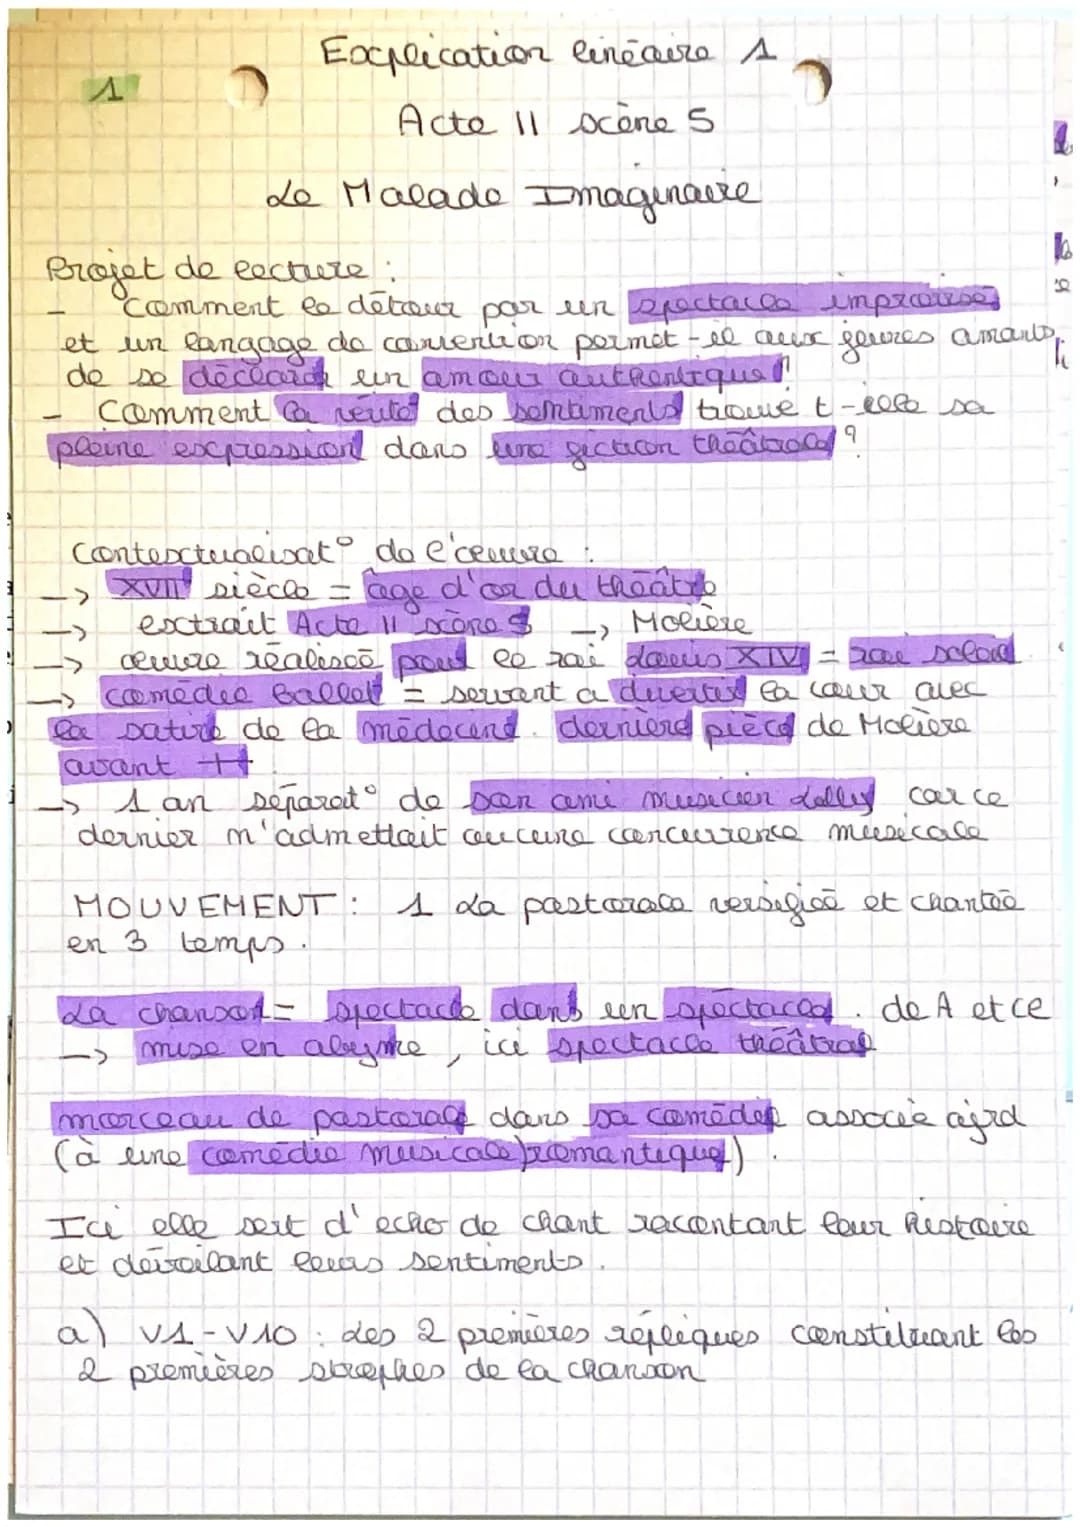 Explication linéaire 1
1
Acte II scène 5
Le Malade Imaginaire
Projet de lecture :
- Comment le détour par un spectacle improvisé
et un langage de convention permet-il aux jeunes amants
de se déclarer un amour authentique ?
- Comment la vérité des sentiments trouve t-elle sa
pleine expression dans une fiction théâtrale ?
Contextualisat° de l'œuvre :
-> XVII siècle = âge d'or du théâtre
-> extrait Acte II scène 5 -> Molière
-> œuvre réalisée pour le roi Louis XIV = roi soleil
-> comédie Ballet = servant a divertir la cour avec
la satire de la médecine. dernière pièce de Molière
avant ††
-> 1 an séparat° de son ami musicien Lully car ce
dernier n'admettait aucune concurrence musicale
MOUVEMENT : 1 La pastorale versifiée et chantée
en 3 temps.
La chanson = spectacle dans un spectacle. de A et ce
-> mise en abyme, ici spectacle théâtral
morceau de pastorale dans sa comédie associée ajrd
(à une comédie musicale)romantique)
Ici elle sert d'echo de chant racontant leur histoire
et dévoilant leurs sentiments.
a) V1-V10 : Les 2 premières répliques constituant les
2 premières strophes de la chanson